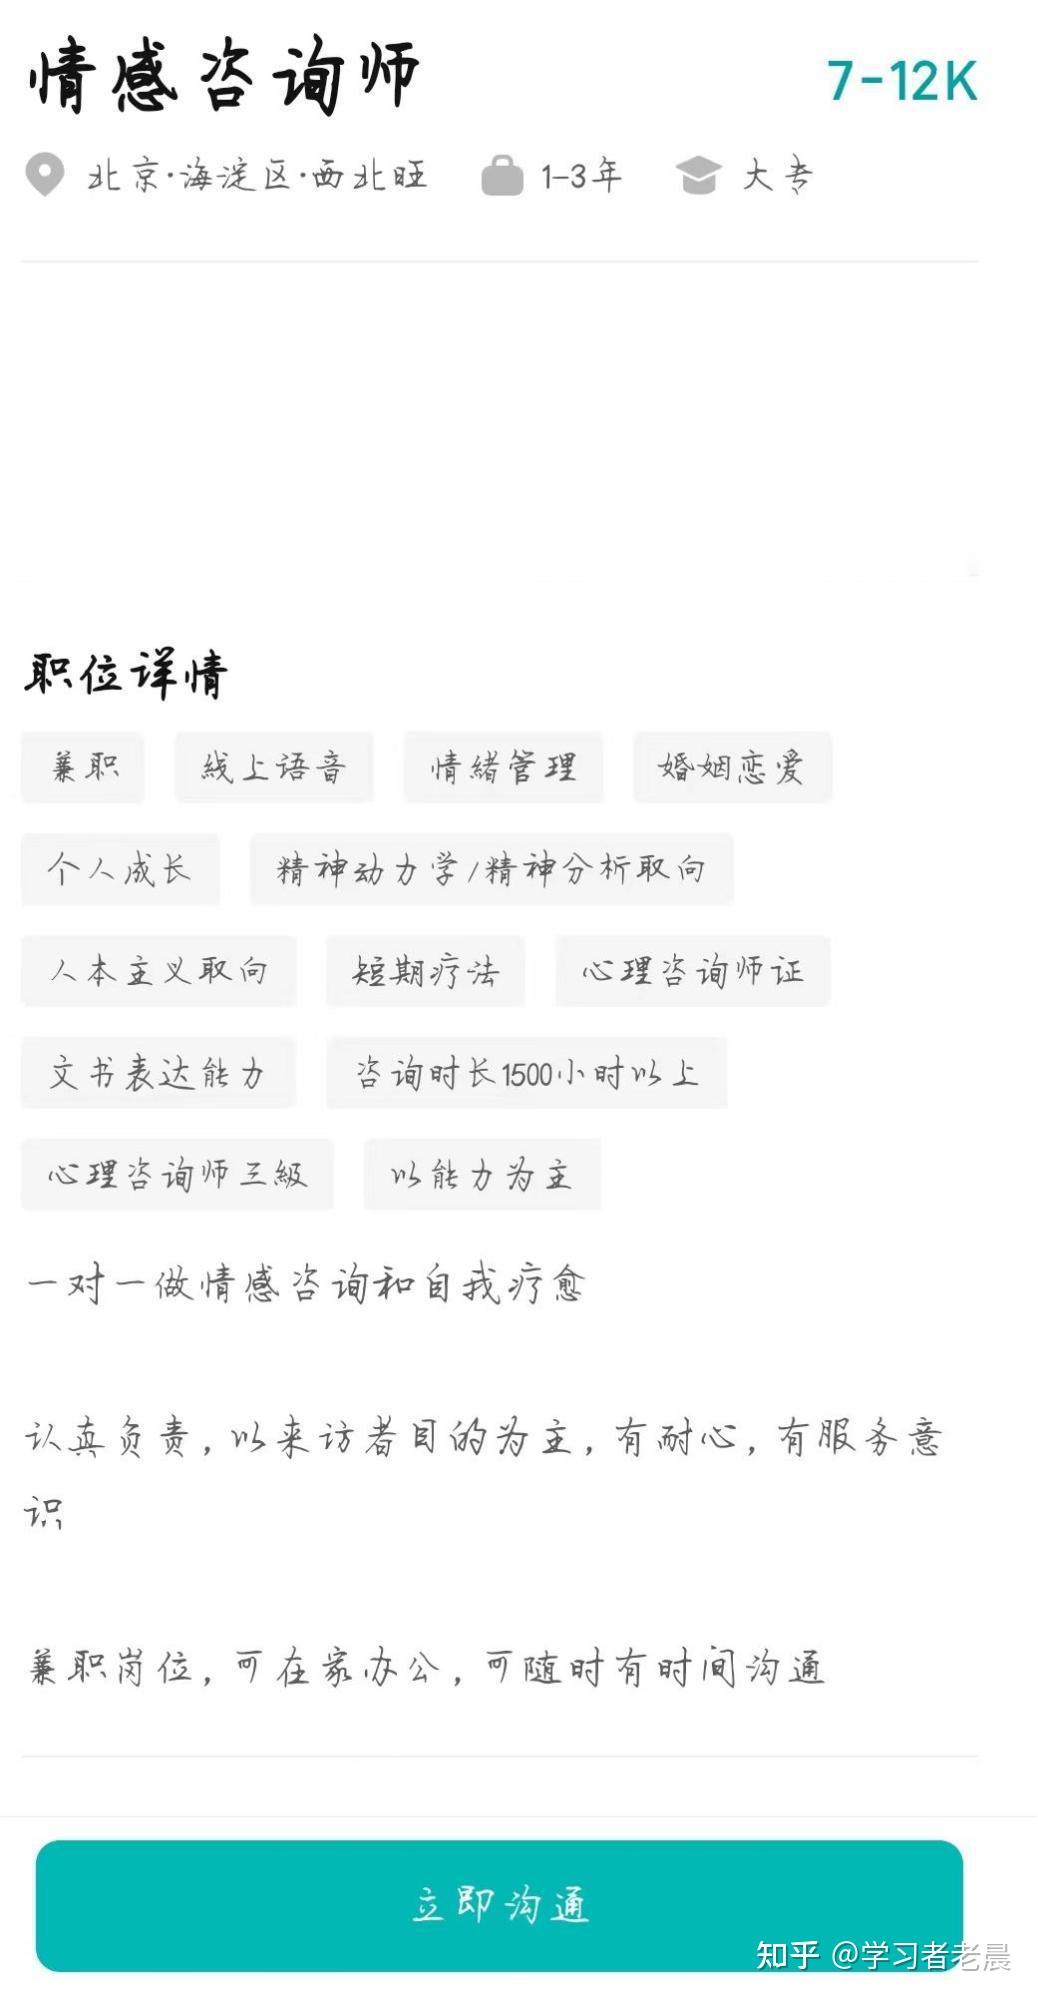 情感咨询师 7-12K
北京·海淀区·西北旺 1-3年 大专
职位详情
兼职 线上语音 情绪管理 婚姻恋爱
个人成长 精神动力学/精神分析取向
人本主义取向 短期疗法 心理咨询师证
文书表达能力 咨询时长1500小时以上
心理咨询师三级 以能力为主
一对一做情感咨询和自我疗愈
认真负责，以来访者目的为主，有耐心，有服务意
识
兼职岗位，可在家办公，可随时有时间沟通
立即沟通
知乎 @学习者老晨